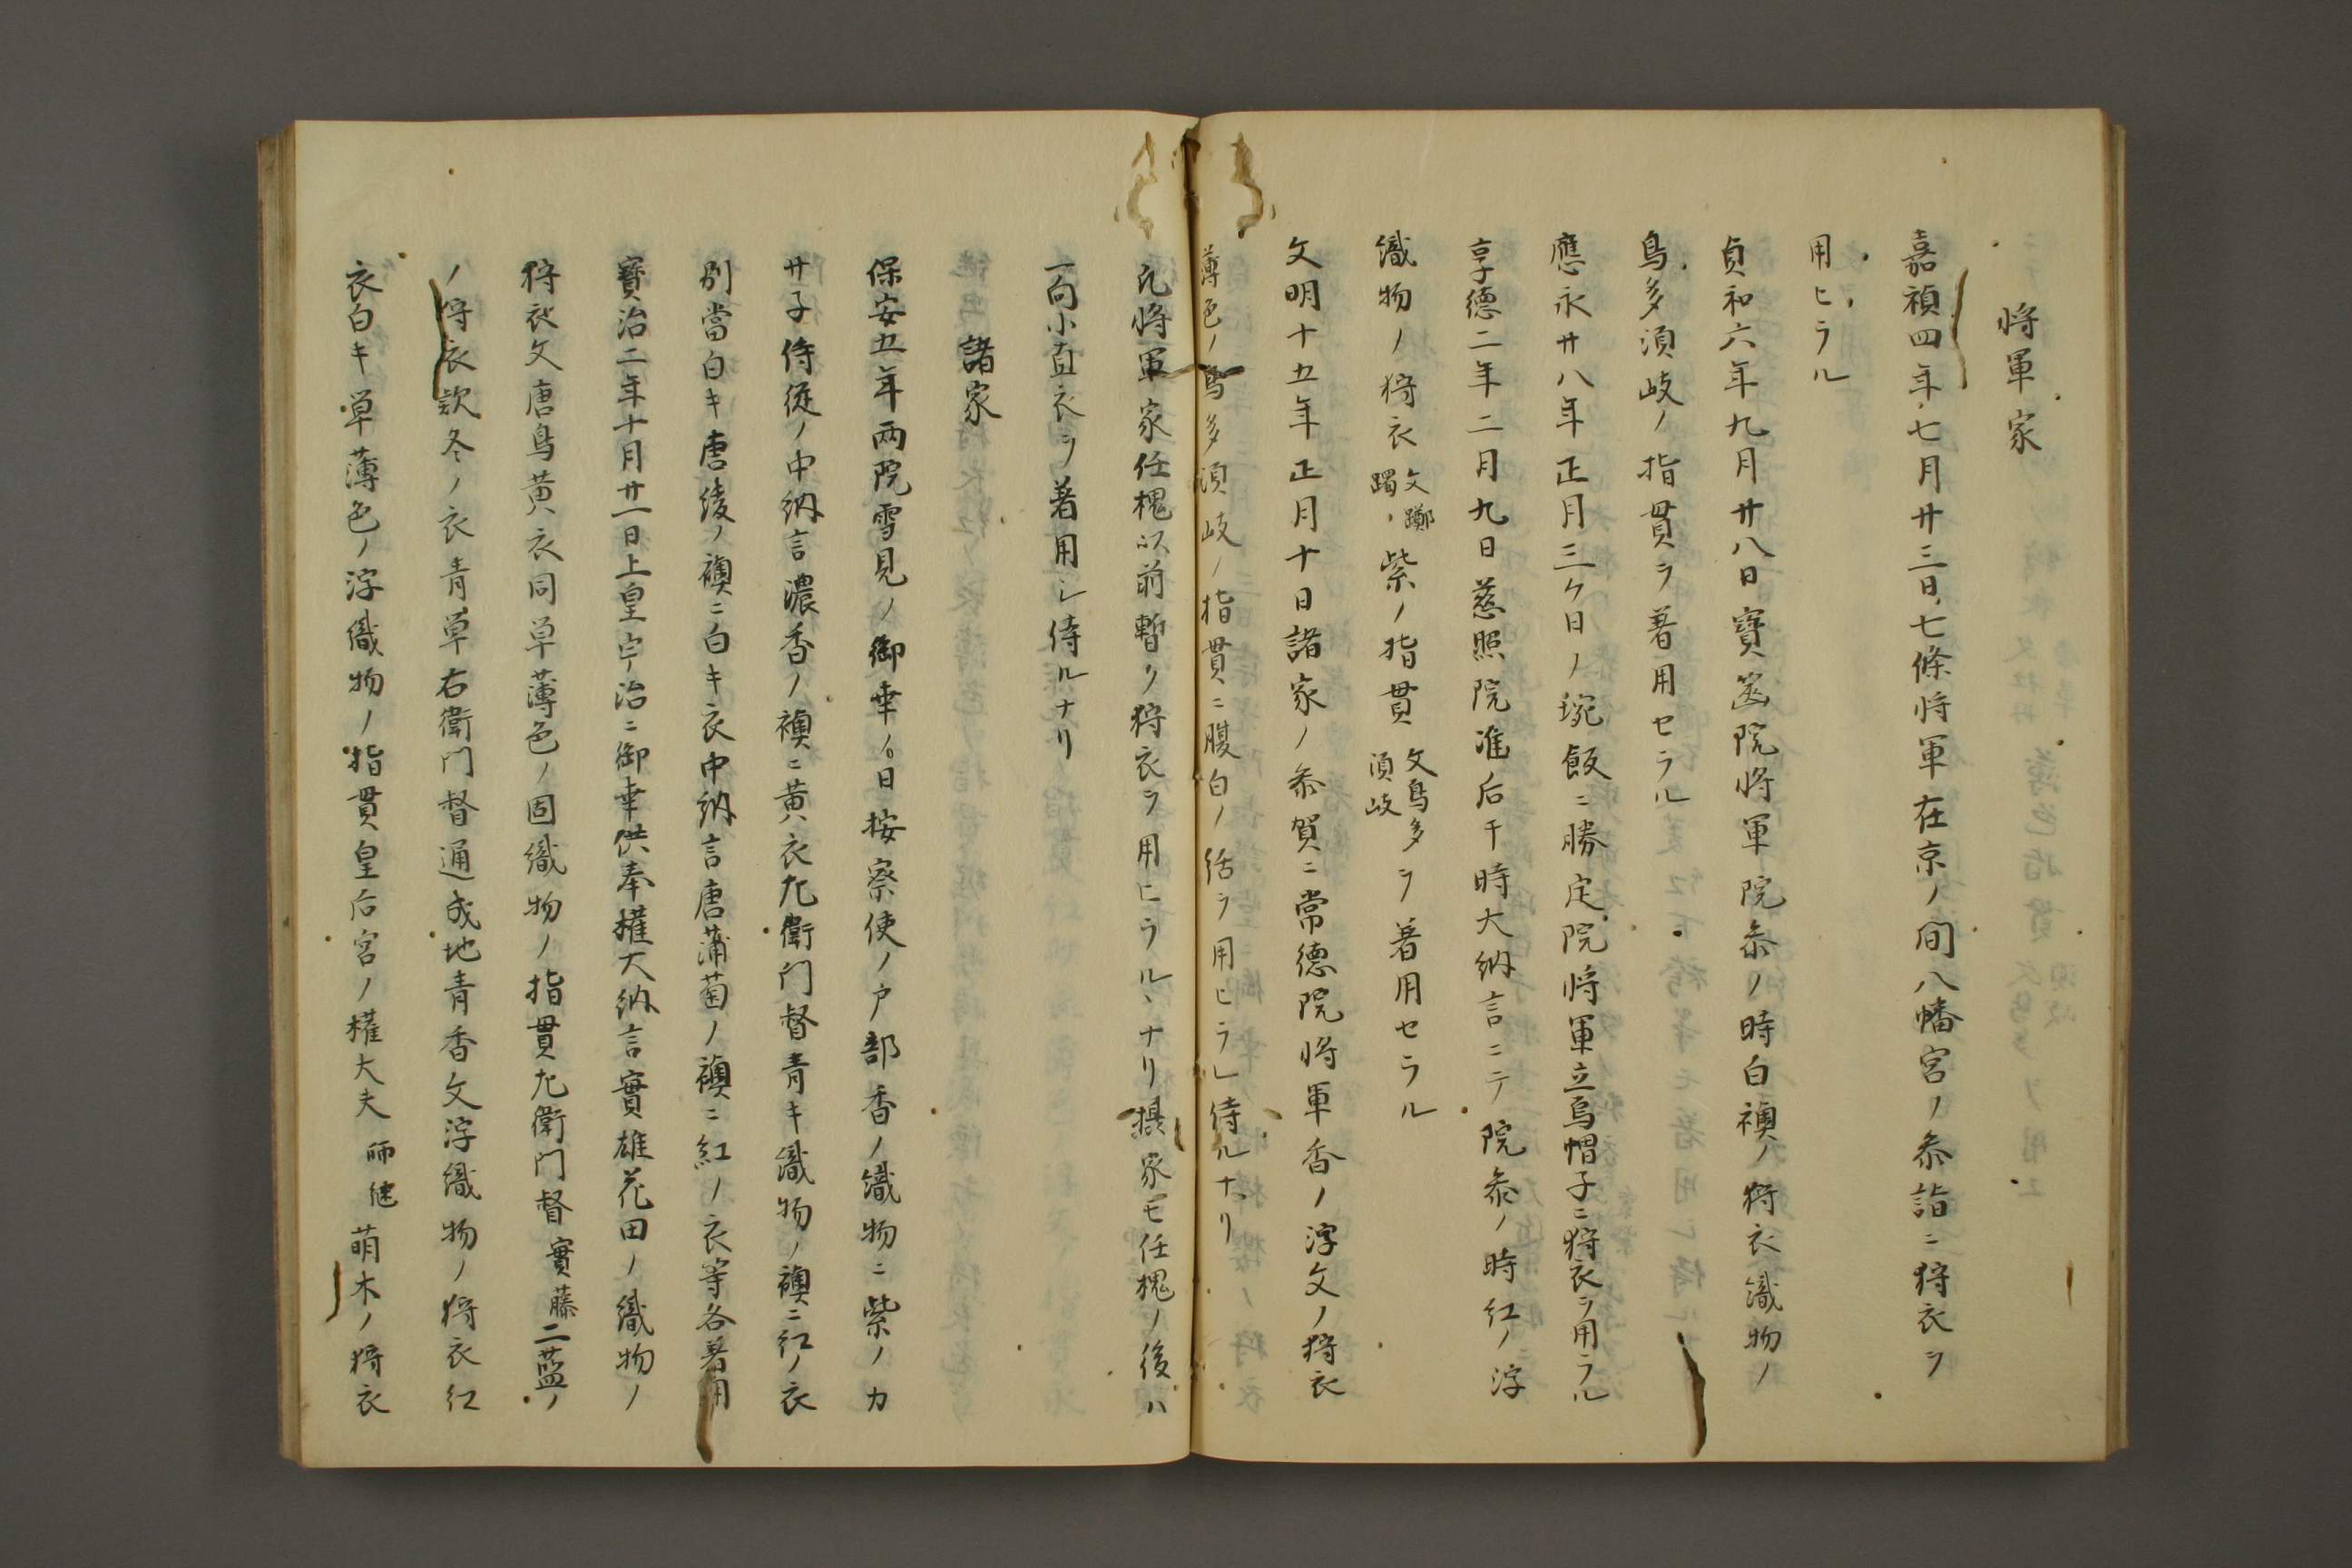 将軍家
嘉禎四年七月廿三日七條将軍在京ノ间八幡宮ノ叅詣ニ狩衣ヲ
用ヒラル
貞和六年九月廿八日寳篋院将軍院叅ノ時白襖ノ狩衣織物ノ
鳥多須岐ノ指貫ヲ著用セラル
應永廿八年正月三ケ日ノ埦飯ニ勝定院将軍立烏帽子ニ狩衣ヲ用ラル
享德二年二月九日慈照院准后于時大納言ニテ院叅ノ時紅ノ浮
織物ノ狩衣文躑躅紫ノ指貫文鳥多須岐ヲ著用セラル
文明十五年正月十日諸家ノ叅賀ニ常德院将軍香ノ浮文ノ狩衣
薄色ノ鳥多須岐ノ指貫ニ腹白ノ括ヲ用ヒラレ侍ルナリ
凢将軍家任槐以前暫ク狩衣ヲ用ヒラルヽナリ摂家モ任槐ノ後ハ
一向小直衣ヲ著用シ侍ルナリ
諸家
保安五年両院雪見ノ御幸ノ日按察使ノ戸部香ノ織物ニ紫ノカ
サ子侍従ノ中納言濃香ノ襖ニ黄衣左衛門督青キ織物ノ襖ニ紅ノ衣
別當白キ唐綾ノ襖ニ白キ衣中納言唐蒲萄ノ襖ニ紅ノ衣等各著用
寳治二年十月廿一日上皇宇治ニ御幸供奉權大納言實雄花田ノ織物ノ
狩衣文唐鳥黄衣同単薄色ノ固織物ノ指貫左衛門督實藤二藍ノ
ノ狩衣款冬ノ衣青単右衛門督通成地青香文浮織物ノ狩衣紅
衣白キ単薄色ノ浮織物ノ指貫皇后宮ノ權大夫師継萌木ノ狩衣